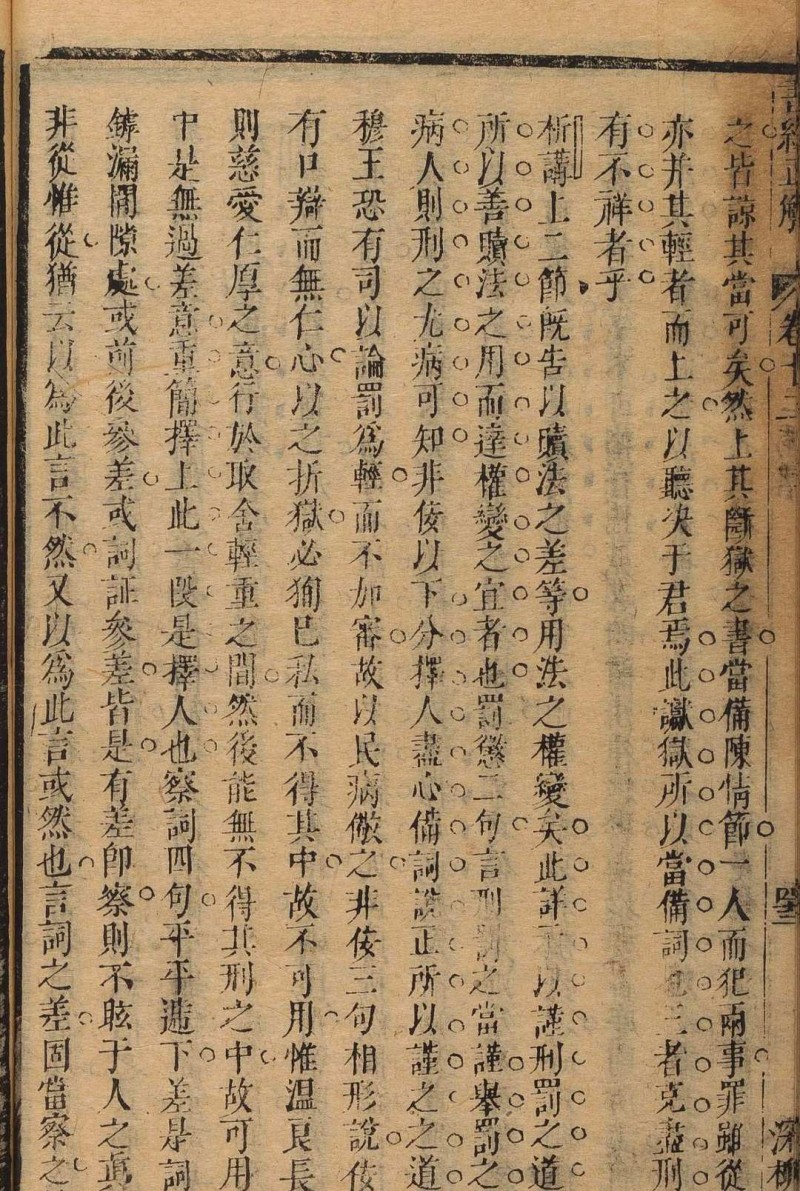 書經正解 卷十二 深柳
之皆諒其當可矣然上其斷獄之書當備陳情節一人而犯兩事罪雖從
亦并其輕者而上之以聽決于君焉此讞獄所以當備詞也三者克盡刑
有不祥者乎
析講上二節旣告以贖法之差等用法之權變矣此詳于以謹刑罰之道
所以善贖法之用而達權變之宜者也罰懲二句言刑罰之當謹舉罰之
病人則刑之尤病可知非佞以下分擇人盡心備詞說正所以謹之之道
穆王恐有司以論罰爲輕而不加審故以民病儆之非佞三句相形說佞
有口辯而無仁心以之折獄必狥已私而不得其中故不可用惟溫良長
則慈愛仁厚之意行於取舍輕重之間然後能無不得其刑之中故可用
中是無過差意重簡擇上此一段是擇人也察詞四句平平遞下差是詞
罅漏間隙處或前後參差或詞証參差皆是有差卽察則不眩于人之眞
非從惟從猶云以爲此言不然又以爲此言或然也言詞之差固當察之